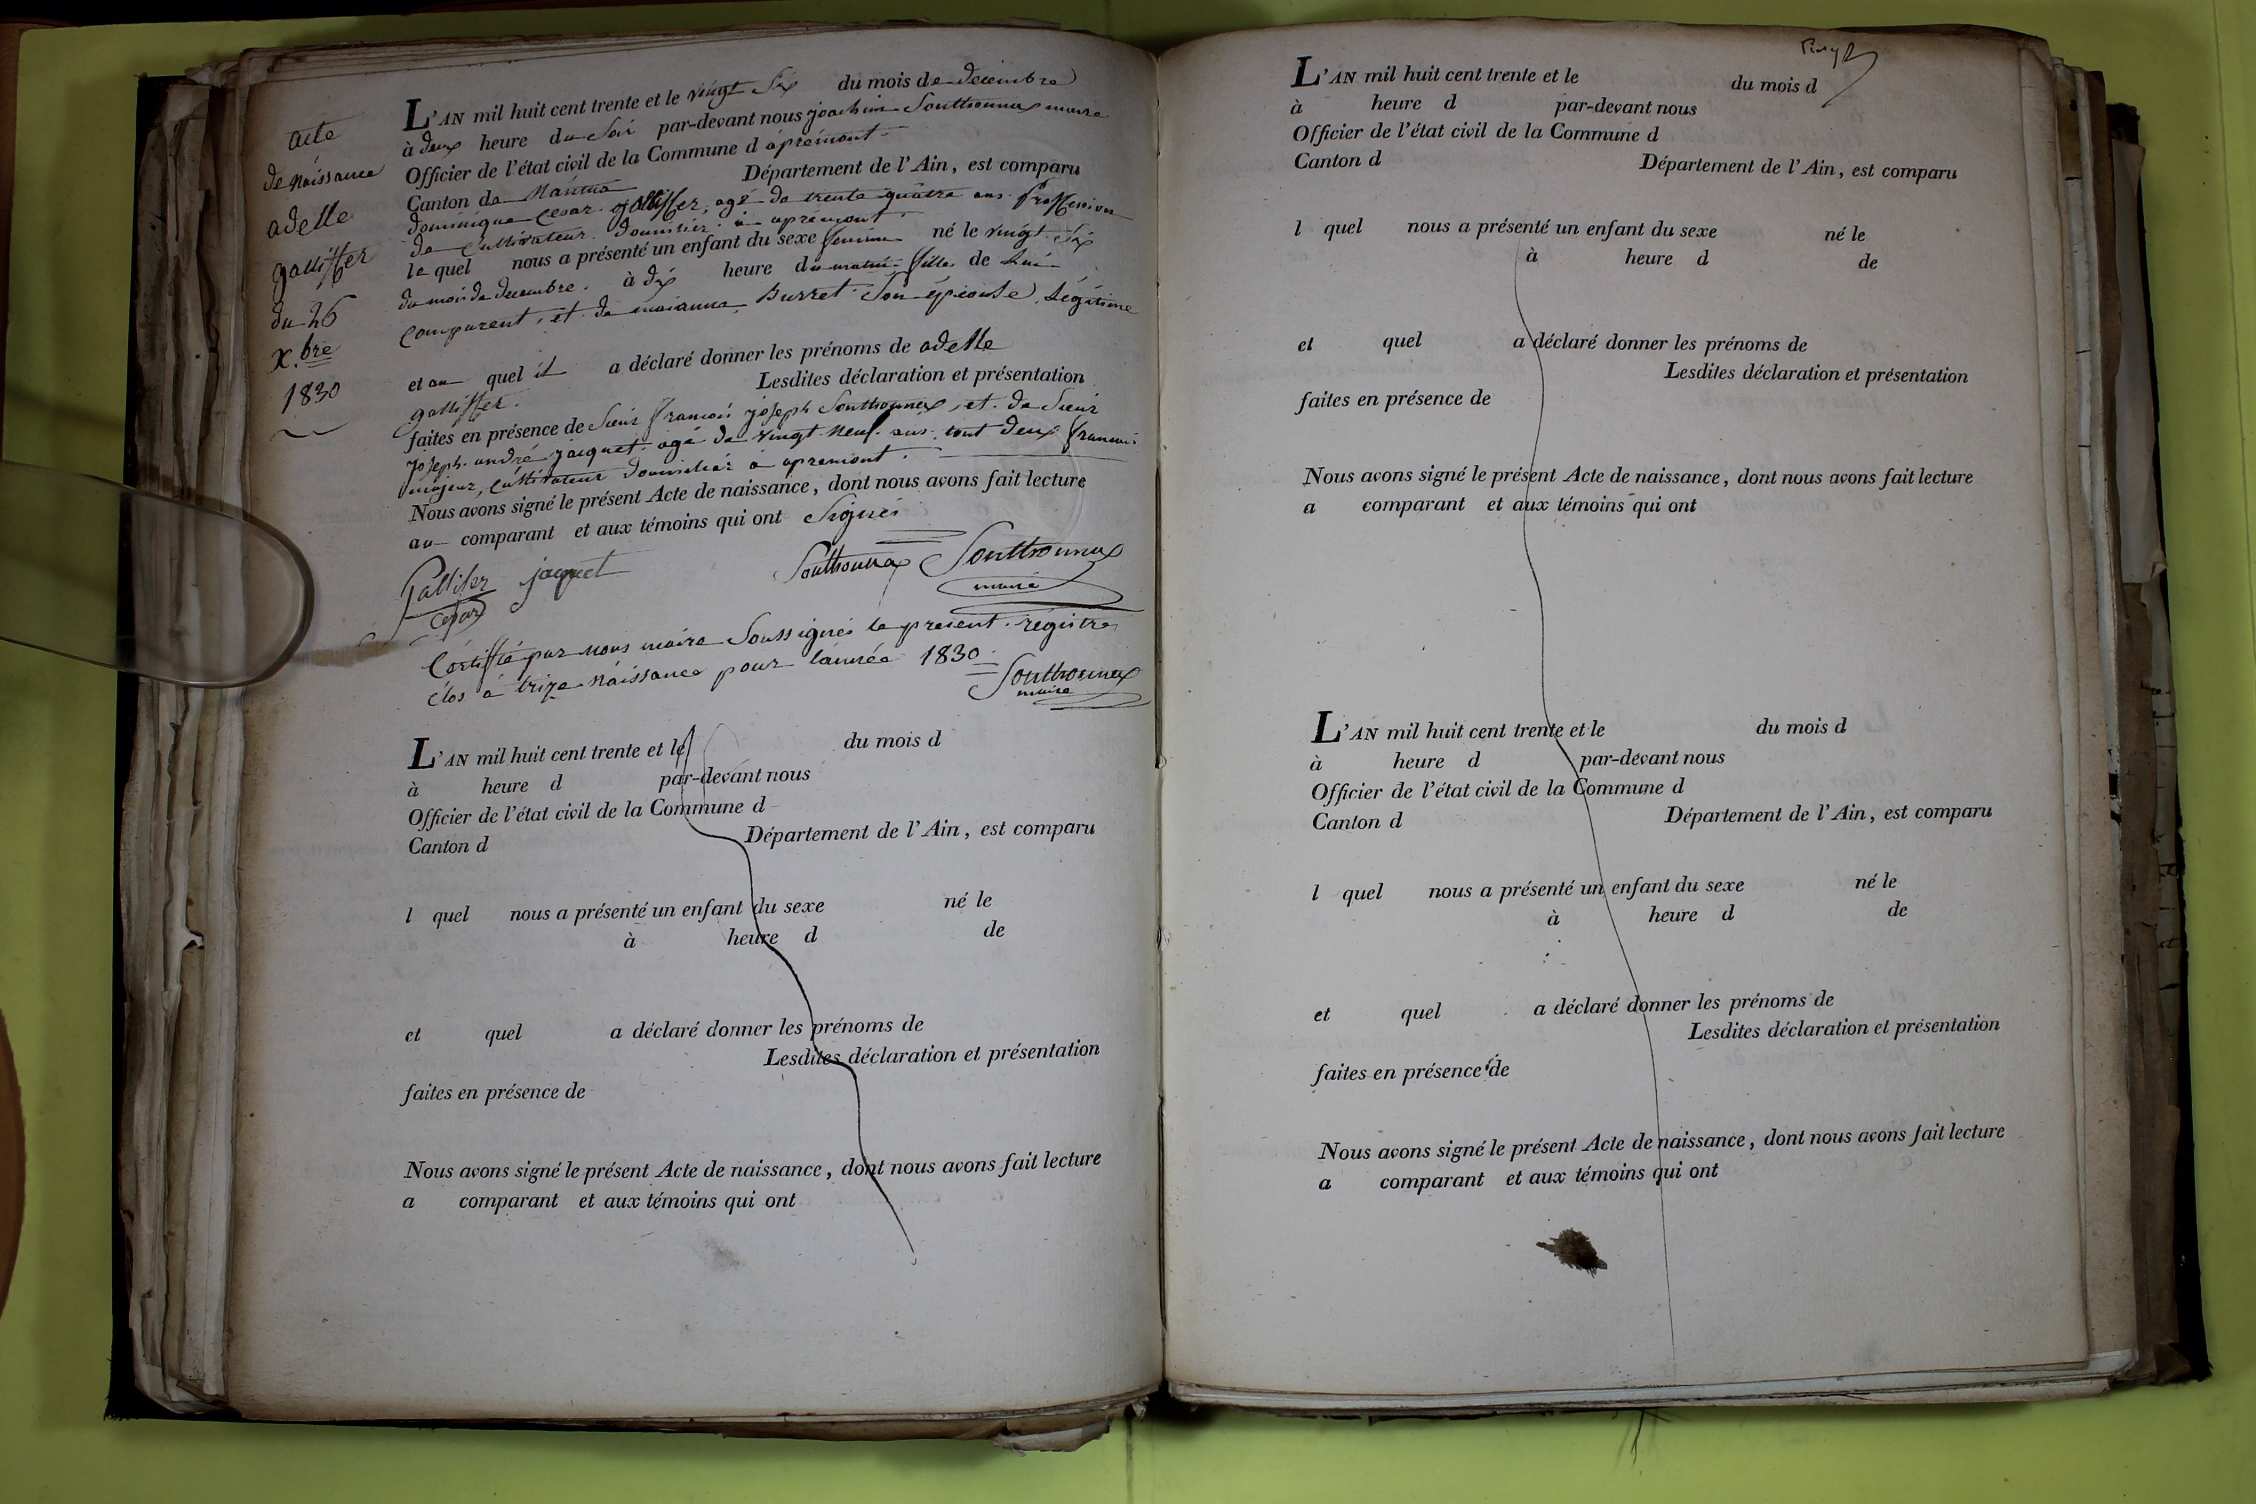 acte
de náissance
adelle
galliffer
du 26
x.bre
1830
L'AN mil huit cent trente et le vingt Six du mois de décembre
à deux heure du Soir par-devant nous joachim Southonnax maire
Officier de l'état civil de la Commune d'apremont.
Canton de Nantua Département de l'Ain, est comparu
dominique Cesar galliffer, agé de trente quatre ans proffession
de Cultivateur domicilié à apremont.
le quel nous a présenté un enfant du sexe féminin né le vingt Six
du mois de décembre. à dix heure du matin fille de lui
comparent, et de marianne Burret Son épouse légitime
et au quel il a déclaré donner les prénoms de adelle
galliffer. Lesdites déclaration et présentation
faites en présence de Sieur francois joseph Southonnax, et de Sieur
joseph andré jacquet agé de vingt neuf ans, tout deux francois
majeur, cultivateur domicilié à apremont.
Nous avons signé le présent Acte de naissance, dont nous avons fait lecture
au comparant et aux témoins qui ont Signés
Gallifer jaquet Southonnax Southonnax
Cesar maire
Certiffié par nous maire Soussignés le present régistre
clos à trize náissance pour lánnée 1830.
Southonnax
maire
L'AN mil huit cent trente et le du mois d
à heure d par-devant nous
Officier de l'état civil de la Commune d
Canton d Département de l'Ain, est comparu
l quel nous a présenté un enfant du sexe né le
à heure d de
et quel a déclaré donner les prénoms de
Lesdites déclaration et présentation
faites en présence de
Nous avons signé le présent Acte de naissance, dont nous avons fait lecture
a comparant et aux témoins qui ont
L'AN mil huit cent trente et le du mois d
à heure d par-devant nous
Officier de l'état civil de la Commune d
Canton d Département de l'Ain, est comparu
l quel nous a présenté un enfant du sexe né le
à heure d de
et quel a déclaré donner les prénoms de
Lesdites déclaration et présentation
faites en présence de
Nous avons signé le présent Acte de naissance, dont nous avons fait lecture
a comparant et aux témoins qui ont
L'AN mil huit cent trente et le du mois d
à heure d par-devant nous
Officier de l'état civil de la Commune d
Canton d Département de l'Ain, est comparu
l quel nous a présenté un enfant du sexe né le
à heure d de
et quel a déclaré donner les prénoms de
Lesdites déclaration et présentation
faites en présence de
Nous avons signé le présent Acte de naissance, dont nous avons fait lecture
a comparant et aux témoins qui ont